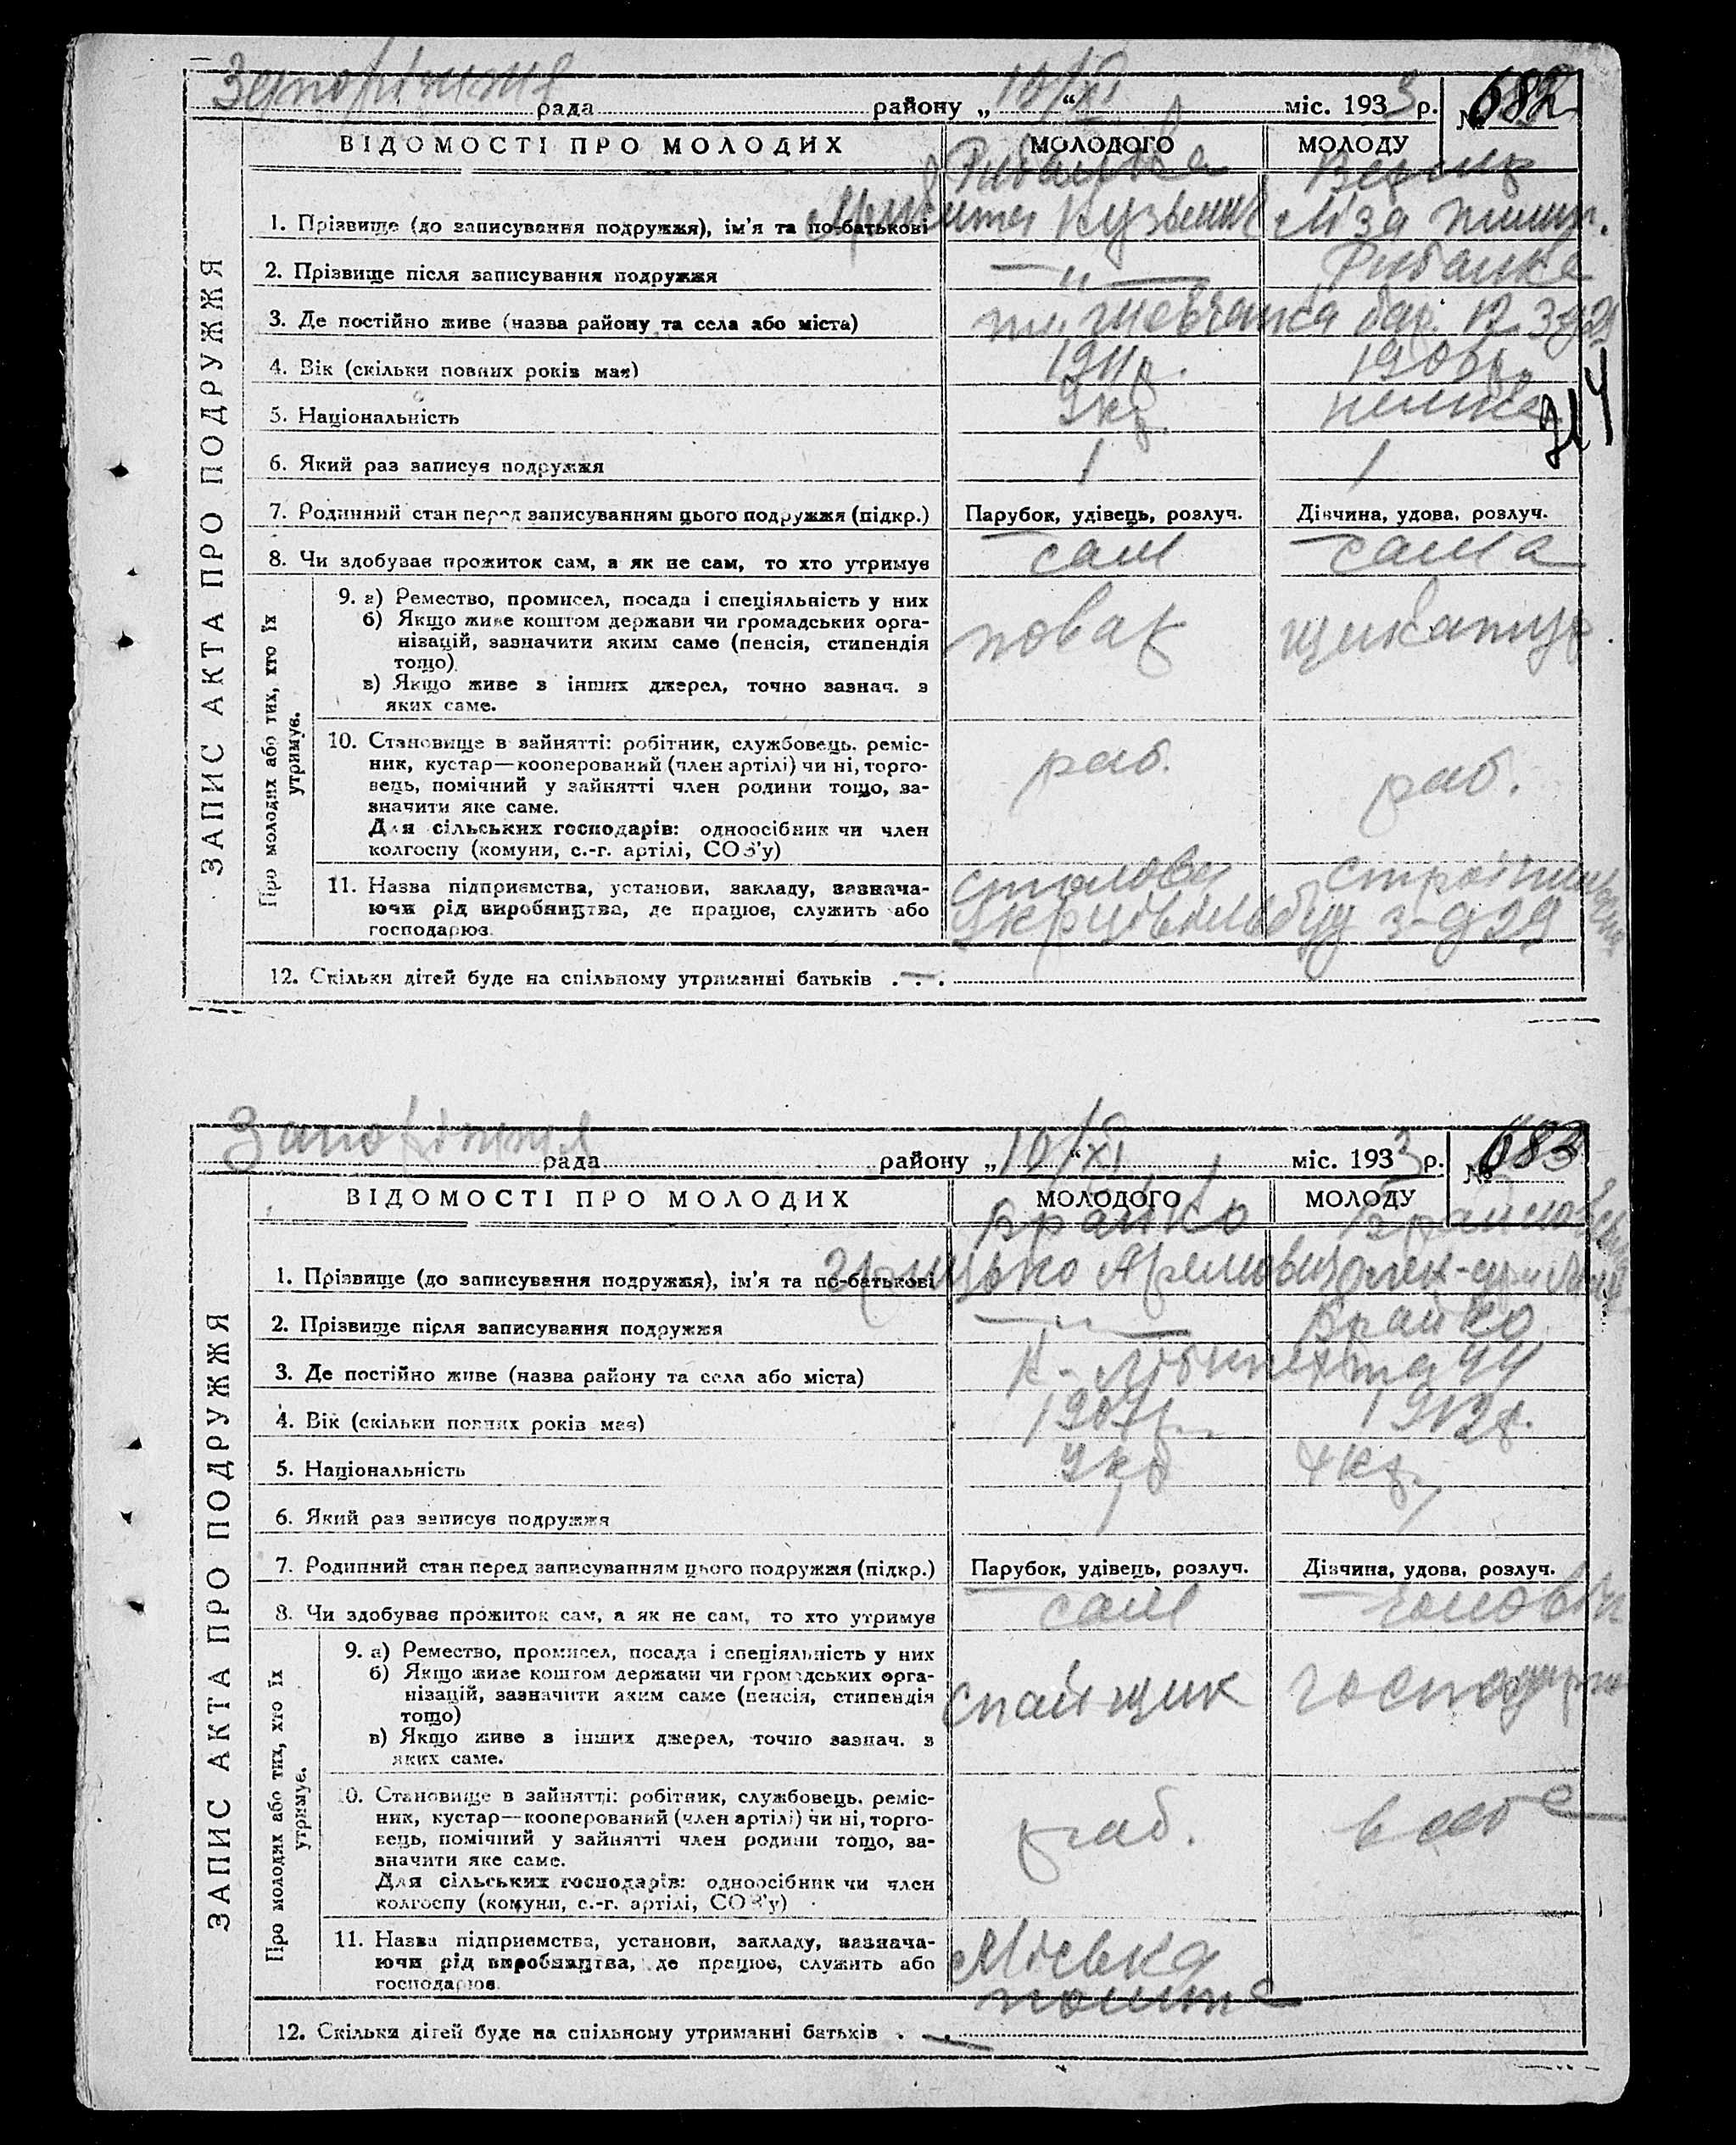 Запоріжжя рада района „10/XI“ міс. 1933 р. № 682
ЗАПИС АКТА ПРО ПОДРУЖЖЯ
ВІДОМОСТІ ПРО МОЛОДИХ МОЛОДОГО МОЛОДУ
1. Прізвище (до записування подружжя), ім'я та по-батькові Кузьмич Ліза
2. Прізвище після записування подружжя — „ —
3. Де постійно живе (назва району та села або міста) Шевченка бар.
4. Вік (скільки повних років має) 1911 р.
5. Національність Укр. німка
6. Який раз записує подружжя 1 1
7. Родинний стан перед записуванням цього подружжя (підкр.) Парубок, удівець, розлуч. Дівчина, удова, розлуч.
8. Чи здобуває прожиток сам, а як не сам, то хто утримує сам сама
Про молодих або тих, хто їх утримує.
9. а) Ремество, промисел, посада і спеціяльність у них
б) Якщо живе коштом держави чи громадських орга-
нізацій, зазначити яким саме (пенсія, стипендія
тощо)
в) Якщо живе з інших джерел, точно зазнач. з
яких саме.
повар
10. Становище в зайнятті: робітник, службовець, реміс-
ник, кустар—кооперований (член артілі) чи ні, торго-
вець, помічний у зайнятті член родини тощо, за-
значити яке саме.
Для сільських господарів: одноосібник чи член
колгоспу (комуни, с.-г. артілі, СОЗ'у)
раб. раб.
11. Назва підприємства, установи, закладу, зазнача-
ючи рід виробництва, де працює, служить або
господарює.
столова
з-д 29
12. Скільки дітей буде на спільному утриманні батьків . — .
Запоріжжя рада району „10/XI“ міс. 1933 р. № 683
ЗАПИС АКТА ПРО ПОДРУЖЖЯ
ВІДОМОСТІ ПРО МОЛОДИХ МОЛОДОГО МОЛОДУ
Брайко
1. Прізвище (до записування подружжя), ім'я та по-батькові Грицько
2. Прізвище після записування подружжя — „ — Брайко
3. Де постійно живе (назва району та села або міста) К-Лібкнехта 44
4. Вік (скільки повних років має) 1907 р. 1912 р.
5. Національність Укр Укр.
6. Який раз записує подружжя 1 1
7. Родинний стан перед записуванням цього подружжя (підкр.) Парубок, удівець, розлуч. Дівчина, удова, розлуч.
8. Чи здобуває прожиток сам, а як не сам, то хто утримує сам чоловік
Про молодих або тих, хто їх утримує.
9. а) Ремество, промисел, посада і спеціяльність у них
б) Якщо живе коштом держави чи громадських орга-
нізацій, зазначити яким саме (пенсія, стипендія
тощо)
в) Якщо живе з інших джерел, точно зазнач. з
яких саме.
спайщик
10. Становище в зайнятті: робітник, службовець, реміс-
ник, кустар—кооперований (член артілі) чи ні, торго-
вець, помічний у зайнятті член родини тощо, за-
значити яке саме.
Для сільських господарів: одноосібник чи член
колгоспу (комуни, с.-г. артілі, СОЗ'у)
раб. в себе
11. Назва підприємства, установи, закладу, зазнача-
ючи рід виробництва, де працює, служить або
господарює.
Міська
пошта
12. Скільки дітей буде на спільному утриманні батьків . — .